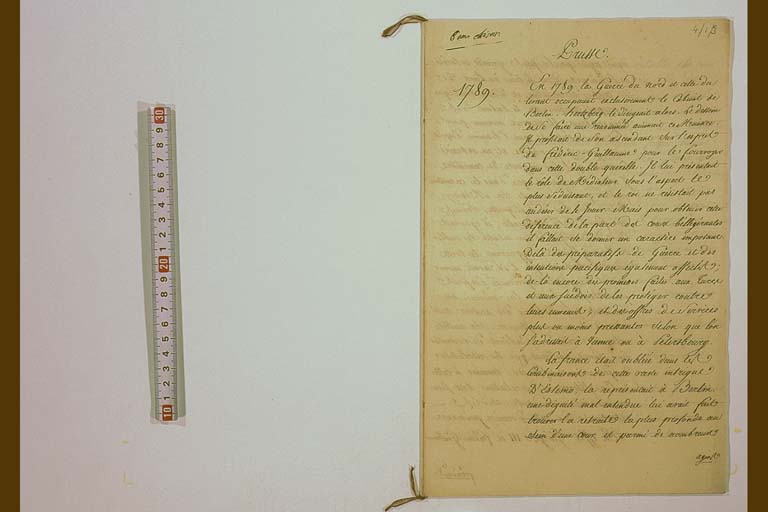 4/1/3
Prusse.
1789.
En 1789 la Guerre du nord et celle du
levant occupaient exclusivement le Cabinet de
Berlin. Hertzberg le dirigeait alors. Le dessein
de se faire une renommée animait ce Ministre.
Il profitait de son ascendant sur l'esprit
de frédéric Guillaume pour le fourvoyer
dans cette double querelle. Il lui présentait
le rôle de Médiateur sous l'aspect le
plus séduisant, et le roi ne résistait pas
au désir de le jouer. Mais pour obtenir cette
déférence de la part des cours belligérantes
il fallait se donner un caractère imposant.
Delà des préparatifs de Guerre et des
intentions pacifiques également affectés;
de là encore des promesses faites aux Turcs
et aux suédois de les protéger contre
leurs ennemis; et des offres de services
plus ou moins pressantes selon que l'on
s'adressait à Vienne ou à Pétersbourg.
La france était oubliée dans les
Combinaisons de cette vaste intrigue.
D'Esterno, la représentait à Berlin.
une dignité mal entendue lui avait fait
trouver la retraite la plus profonde au
sein d'une cour, et parmi de nombreux
agents
30
9
8
7
6
5
4
3
2
1
20
9
8
7
6
5
4
3
2
1
10